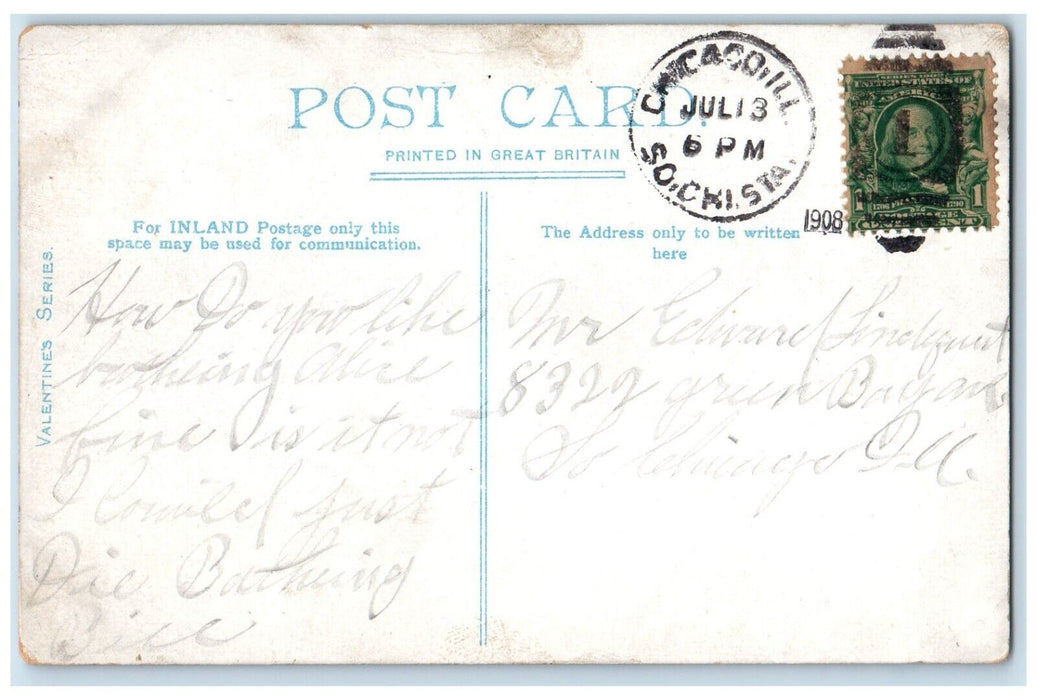 POST CARD.
PRINTED IN GREAT BRITAIN
CHICAGO, ILL.
JUL 13
6 PM
SO. CHI. STA.
1908
SERIES 1902
UNITED STATES OF
1
1706 1790
VALENTINE'S SERIES.
For INLAND Postage only this
space may be used for communication.
The Address only to be written
here
How Do you like
batheing Alice
fine is it not
I Could just
Die Batheing
Bill
Mr Edward Lindquist
8322 green Bay av
So Chicago Ill.